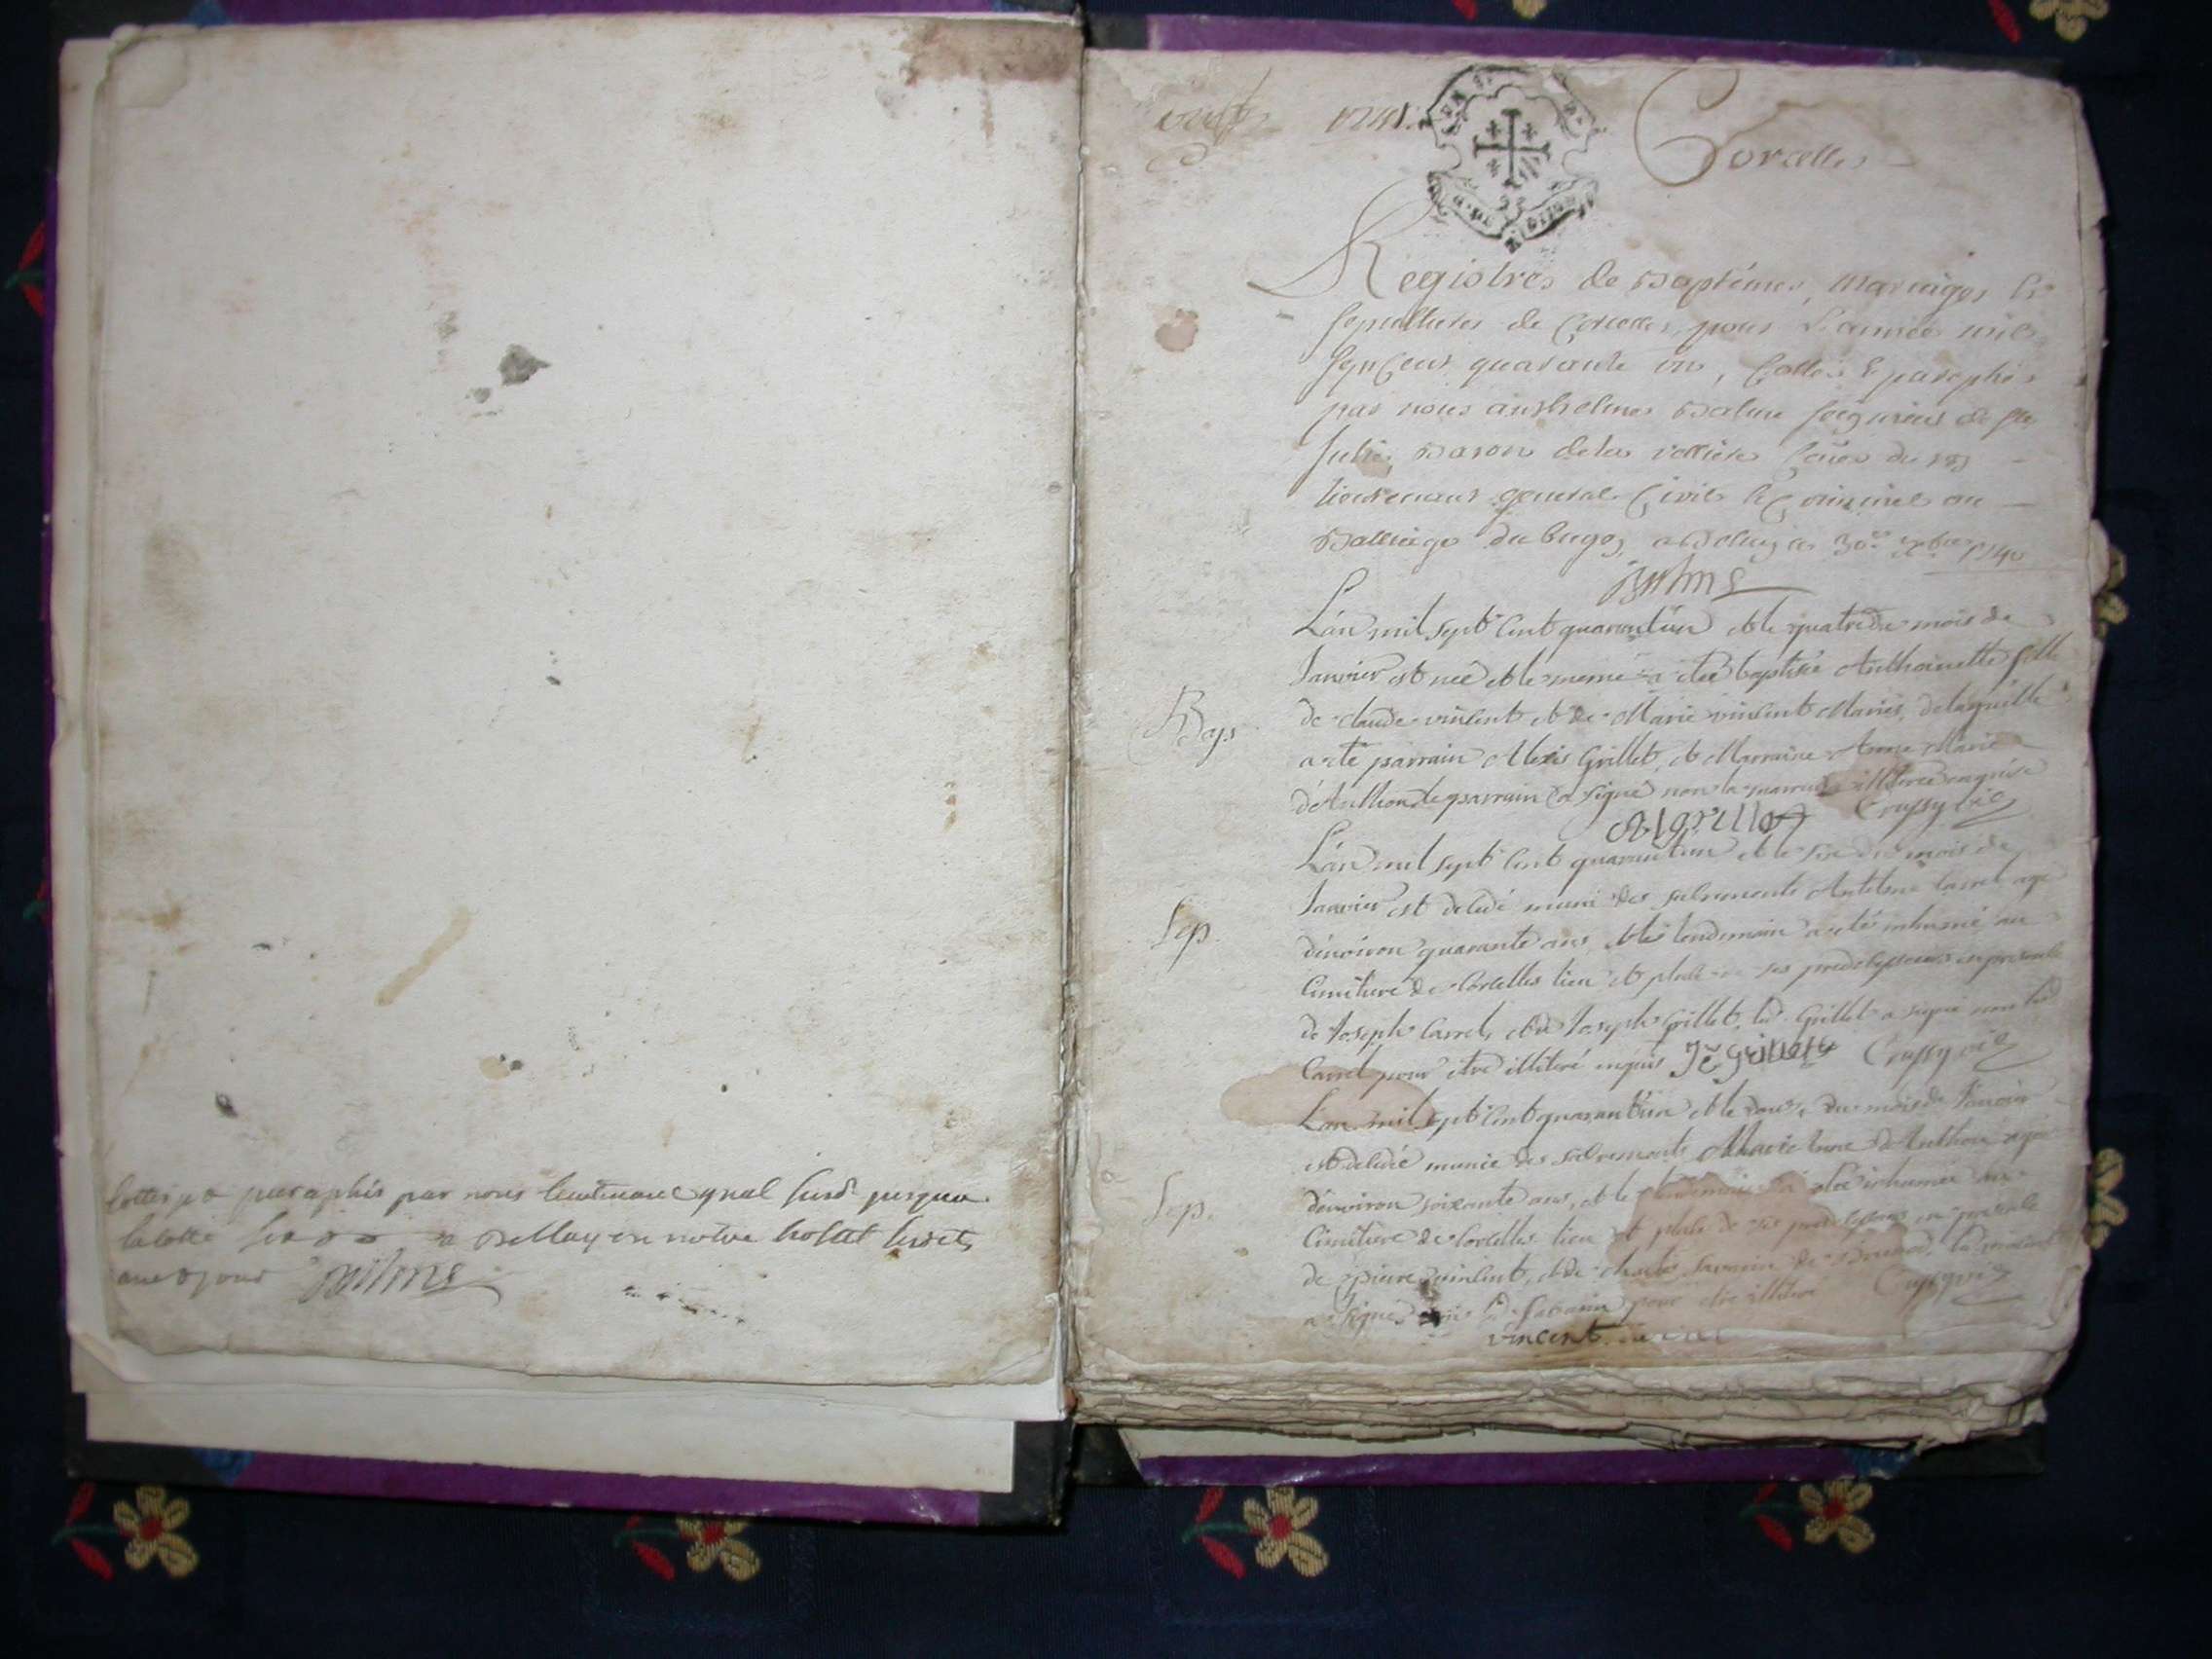 par nous lieutenant
a Belley en notre hostel
Balme
1741.
Corcelles
Registres de Baptêmes, mariages &
sepultures de Corcelles pour L'année mil
sept Cens quarante un, Cottés & paraphés
par nous anthelme Balme seigneur de Ste
Julie, Baron de la
lieutenant general Civil & Criminel au
Balliage du bugey, a Belley ce 30e 1740
Balme
L'an mil sept cent quarant'un et le quatre du mois de
Janvier est née et le meme a eté baptisée Anthoinette fille
Bap.
de claude vincent et de Marie vincent Mariés, de laquelle
a eté parrain Alexis Grillet, et Marraine Anne Marie
d'Anthon le parrain a signé non la marraine illiterée enquise
A Grillet Crussy vic
L'an mil sept cent quarant'un et le six du mois de
Janvier est decedé muni des sacrements Antelme Carrel agé
Sep.
d'environ quarante ans, et le lendemain a eté inhumé au
cimitiere de Corcelles lieu et place de ses predecesseurs en presence
de Joseph Carrel, et de Joseph Grillet, led. Grillet a signé non led
Carrel pour etre illiteré enquis Je Grillet Crussy vic
L'an mil sept cent quarant'un et le douze du mois de Janvier
est decedée munie des sacrements Marie Anne d'Anthon agée
Sep.
d'environ soixante ans, et le lendemain a eté inhumée au
cimitiere de Corcelles lieu et place de ses predecesseurs en presence
de pierre vincent, et de Savarin de
a signé Savarin pour etre illiteré
vincent